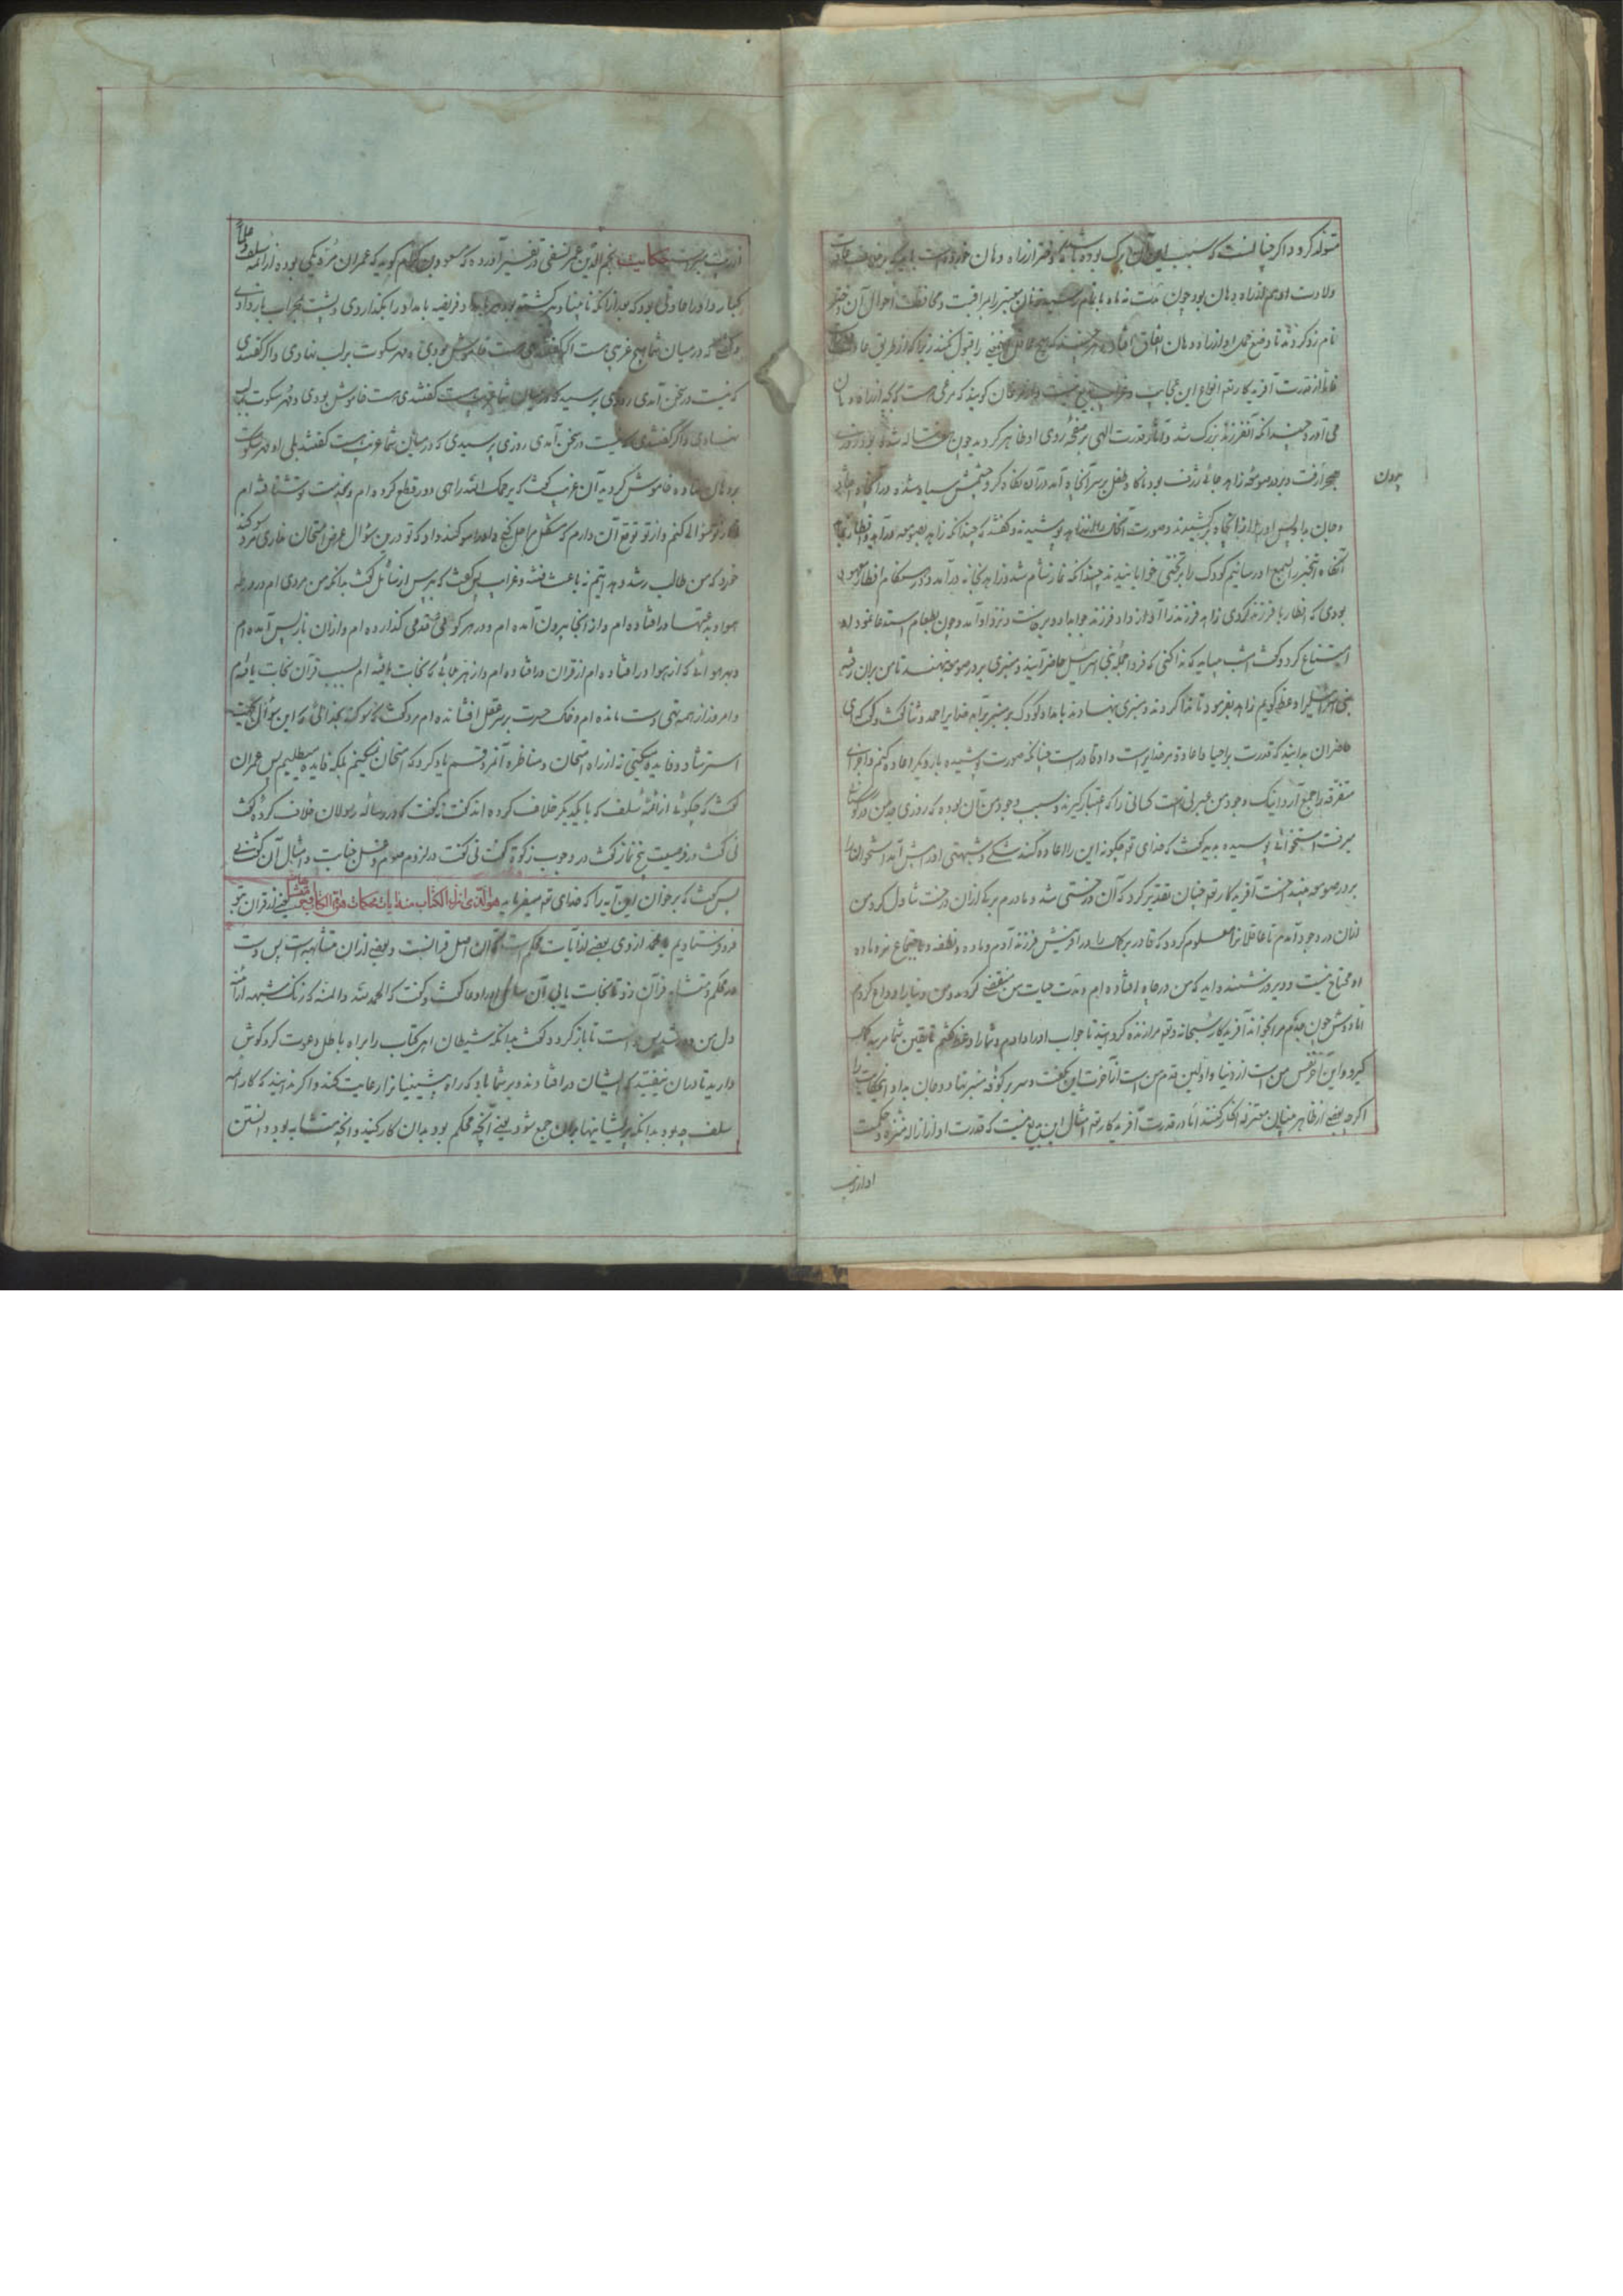 متولد کردد اکر چنانست که سبب این آن برک بوده باشد که دختر از راه دهان خورده است باید که
ولادت او هم از راه دهان بود چون مدت نه ماه باتمام رسید زنان معتبر را مراقبت و محافظت احوال آن دختر
نام زد کردند تا وضع حمل او از راه دهان اتفاق افتاد هر چند که هیچ عاقل این را قبول نکند زیرا که از طریق عادت
فاما از قدرت آفریدکار تعم انواع این عجایب و غرایب بدیع نیست کویند که مرغی هست که بچه از راه دهان
می آورد چندانکه آن فرزند بزرک شد و آثار قدرت الهی بر صفحه روی او ظاهر کردید چون هفت ساله شد روزی
بیرون
صحرا رفت و بر در صومعه زاهد چاهی ژرف بود ناکاه طفل بر سر آن چاه آمد در آن نکاه کرد چشمش سیاه شده در آن چاه افتاد
و جان بداد پس او را از آن چاه برکشیدند و صورت آن کار را از زاهد پوشیدند و کفتند که چندانکه زاهد بصومعه در آید و افطار
آنکاه این خبر را بسمع او رسانیم کودک را بر تختی خوابانیدند چندانکه نماز شام شد و زاهد بخانه در آمد و در هنکام افطار معهود
بودی که افطار با فرزند کردی زاهد فرزند را آواز داد فرزند جواب داد و برخاست و نزد او آمد و چون بطعام استدعا نمود او
امتناع کرد و کفت امشب میباید که ندا کنی که فردا جمله بنی اسرائیل حاضر آیند و منبری بر در صومعه بنهند تا من بران رفته
بنی اسرائیل را وعظ کویم زاهد بفرمود تا ندا کردند و منبری نهادند بامداد کودک بر منبر برآمد خدایرا حمد و ثنا کفت و کفت ای
حاضران بدانید که قدرت بر احیا و اعادۀ مر خدایراست و او قادر است چنانکه صورت پوشیده بار دیکر اعاده کنم و اجزای
متفرقه را جمع آرد اینک وجود من عبرتی است کسانی را که اعتبار کیرند و سبب وجود من آن بوده که روزی جد من در کورستان
میرفت استخوانی پوسیده بدید کفت که خدای تعم چکونه این را اعاده کند شکی و شبهتی او را پیش آمد استخوان را
بر در صومعه بینداخت آفریدکار تعم چنان تقدیر کرد که آن درختی شد و مادرم برکی از آن درخت تناول کرد و من
از آن در وجود آمدم تا عاقلانرا معلوم کردد که قادر بر کمال در آفرینش فرزند آدم و ماده و نطفه و اجتماع نر و ماده
او محتاج نیست و دیروز شنیده اید که من در چاه افتاده ام و مدت حیات من منقضی کردید و من دنیا را وداع کردم
اما دوش چون پدرم مرا بخواند آفریدکار سبحانه و تعم مرا زنده کردانید تا جواب او را دادم و شما را وعظ کفتم تا یقین شما مرتبه کمال
کیرد و این آخر نفس من است از دنیا و اولین قدم من است از آخرت این بکفت و سر بر کوشه منبر نهاد و جان بداد این حکایت را
اکر چه بعضی از ظاهر بینان معتزله انکار کنند اما در قدرت آفریدکار تعم امثال این بدیع نیست که قدرت او از ازاله منزه و حکمت
او از ریب
از ریب مبراست حکایت نجم الدین عمر نسفی در تفسیر آورده که مسعود بن کرام کوید که عمران مکی بوده از ائمه سلف و علماء
کبار و او را عادتی بود که بعد از آنکه نابینا و پیر کشته بود هر بامداد فریضه بامداد را بکذاردی و پشت بمحراب باز دادی
و کفتی که در میان شما هیچ غریبی هست اکر کفتندی هست خاموش بودی و مهر سکوت بر لب نهادی و اکر کفتندی
که نیست در سخن آمدی روزی پرسید که در میان شما غریب هست کفتندی هست خاموش بودی و مهر سکوت بر لب
نهادی و اکر کفتندی که نیست در سخن آمدی روزی پرسیدی که در میان شما غریب هست کفتند بلی او مهر سکوت
بر دهان نهاده خاموش کردید آن غریب کفت که یرحمک الله راهی دور قطع کرده ام و بخدمت تو شتافته ام
تا از تو سؤالی کنم و از تو توقع آن دارم که مشکل مرا حل کنی و او را سوکند داد که تو درین سؤال غرض امتحان نداری مرد سوکند
خورد که من طالب رشد و هدایتم نه باعث فتنه و غرایت پس کفت که بپرس از سائل کفت بدانکه من مردی ام در ورطه
هوا و بدعتها در افتاده ام و از آنجا بیرون آمده ام و در هر کوی قدمی کذارده ام و از ان باز پس آمده ام
و بهر هوائی که از هوا در افتاده ام از قران در افتاده ام و از هر جائی که نجات یافته ام بسبب قرآن نجات یافته ام
و امروز از همه تهی دست مانده ام و خاک حسرت بر سر عقل افشانده ام مرد کفت که سوکند بخدائی که این سؤال بجهت
استرشاد و فایده میکنی نه از راه امتحان و مناظره آنمرد قسم یاد کرد که امتحان نمیکنم بلکه فایده میطلبم پس عمران
کفت که چکوئی از ائمه سلف که با یکدیکر خلاف کرده اند کفت نه کفت که در رسالۀ رسولان خلاف کرد کفت
نی کفت در فرضیت پنج نماز کفت در وجوب زکوة کفت نی کفت در لزوم صوم و غسل جنابت و امثال آن کفت نی
پس کفت که برخوان این آیه را که خدای تعم میفرماید هو الذی انزل الکتاب منه ایات محکمات هن ام الکتاب و اخر متشابهات یعنی قران بتو
فرو فرستادیم یا محمد از وی بعضی از آیات محکم است که آن اصل قرانست و بعضی از ان متشابهست پس دست
در محکم و متشابه قرآن زن تا نجات یابی آن سائل او را دعا کفت و کفت که الحمد لله و المنه که زنک شبهه از آئینه
دل من دور شد پس خواست تا باز کردد کفت بدانکه شیطان اهل کتاب را براه باطل دعوت کرد کوش
دارید تا در ان نیفتید که ایشان در افتادند و بر شما باد که راه پیشینیانرا رعایت کنند و اکر ندانید که کار ائمه
سلف چه بود بدانکه پریشانیها بدان جمع شود یعنی آنچه محکم بود بدان کار کنید و آنچه متشابه بود دانستن